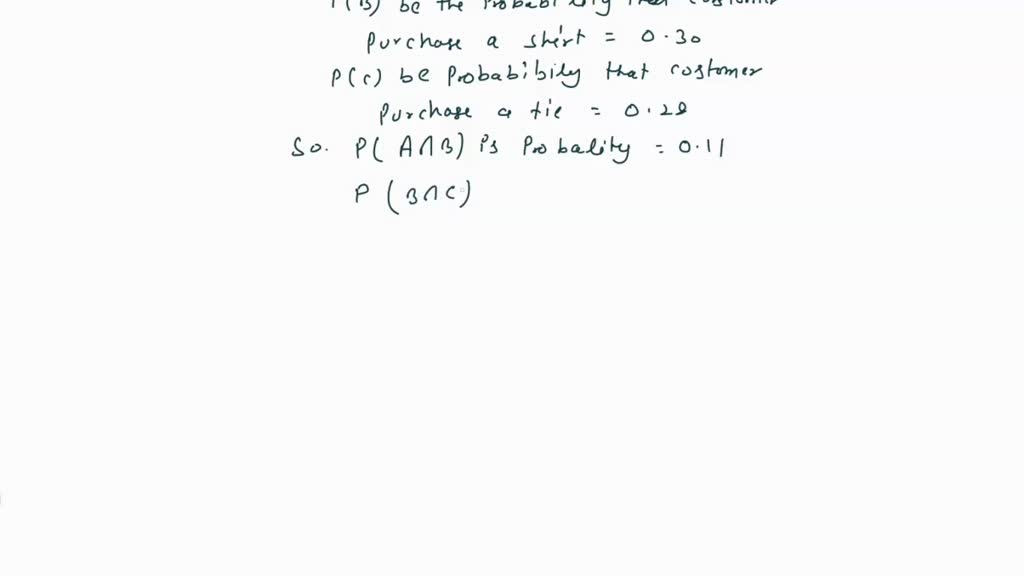 P(B) be the Probability that customer
Purchase a shirt = 0.30
P(C) be Probabibily that costomer
Purchase a tie = 0.28
So. P(A∩B) is Probality = 0.11
P(B∩C)